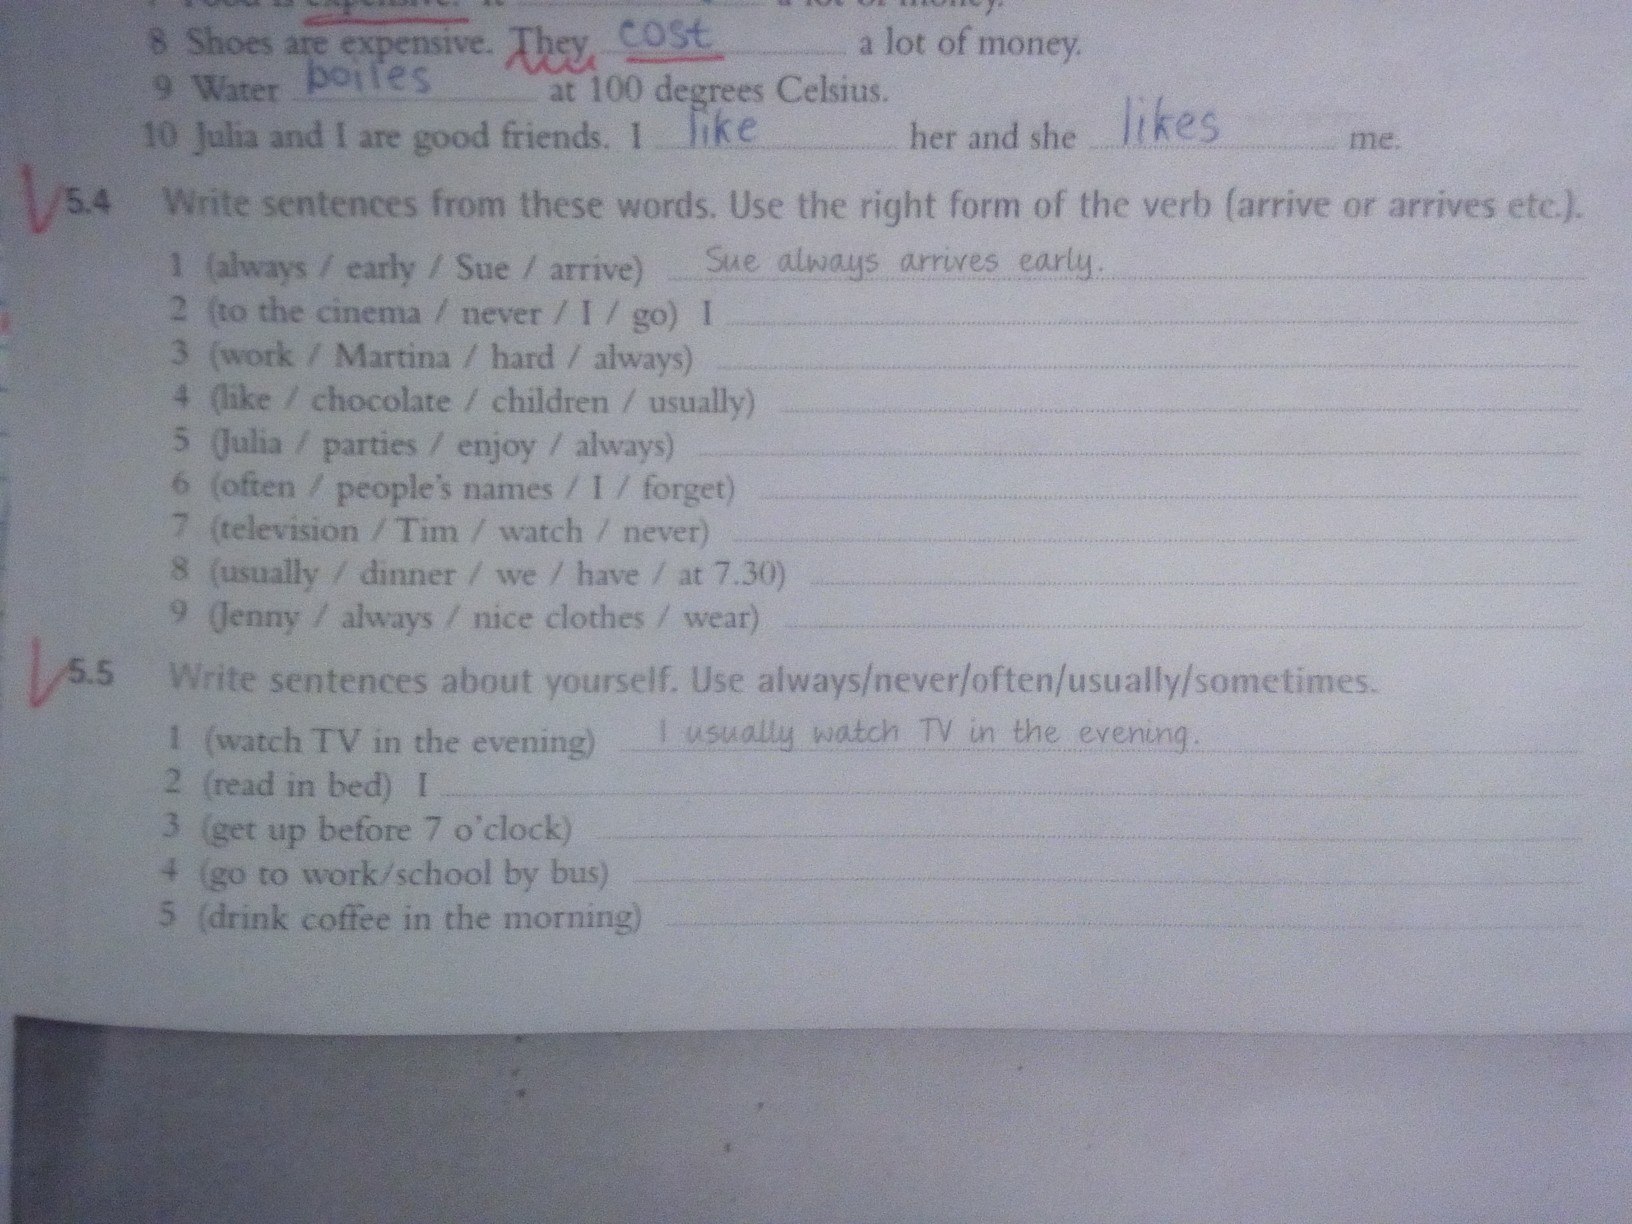 expensive. It a lot of money.
8 Shoes are expensive. They cost a lot of money.
9 Water boiles at 100 degrees Celsius.
10 Julia and I are good friends. I like her and she likes me.
5.4 Write sentences from these words. Use the right form of the verb (arrive or arrives etc.).
1 (always / early / Sue / arrive) Sue always arrives early.
2 (to the cinema / never / I / go) I
3 (work / Martina / hard / always)
4 (like / chocolate / children / usually)
5 (Julia / parties / enjoy / always)
6 (often / people's names / I / forget)
7 (television / Tim / watch / never)
8 (usually / dinner / we / have / at 7.30)
9 (Jenny / always / nice clothes / wear)
5.5 Write sentences about yourself. Use always/never/often/usually/sometimes.
1 (watch TV in the evening) I usually watch TV in the evening.
2 (read in bed) I
3 (get up before 7 o'clock)
4 (go to work/school by bus)
5 (drink coffee in the morning)